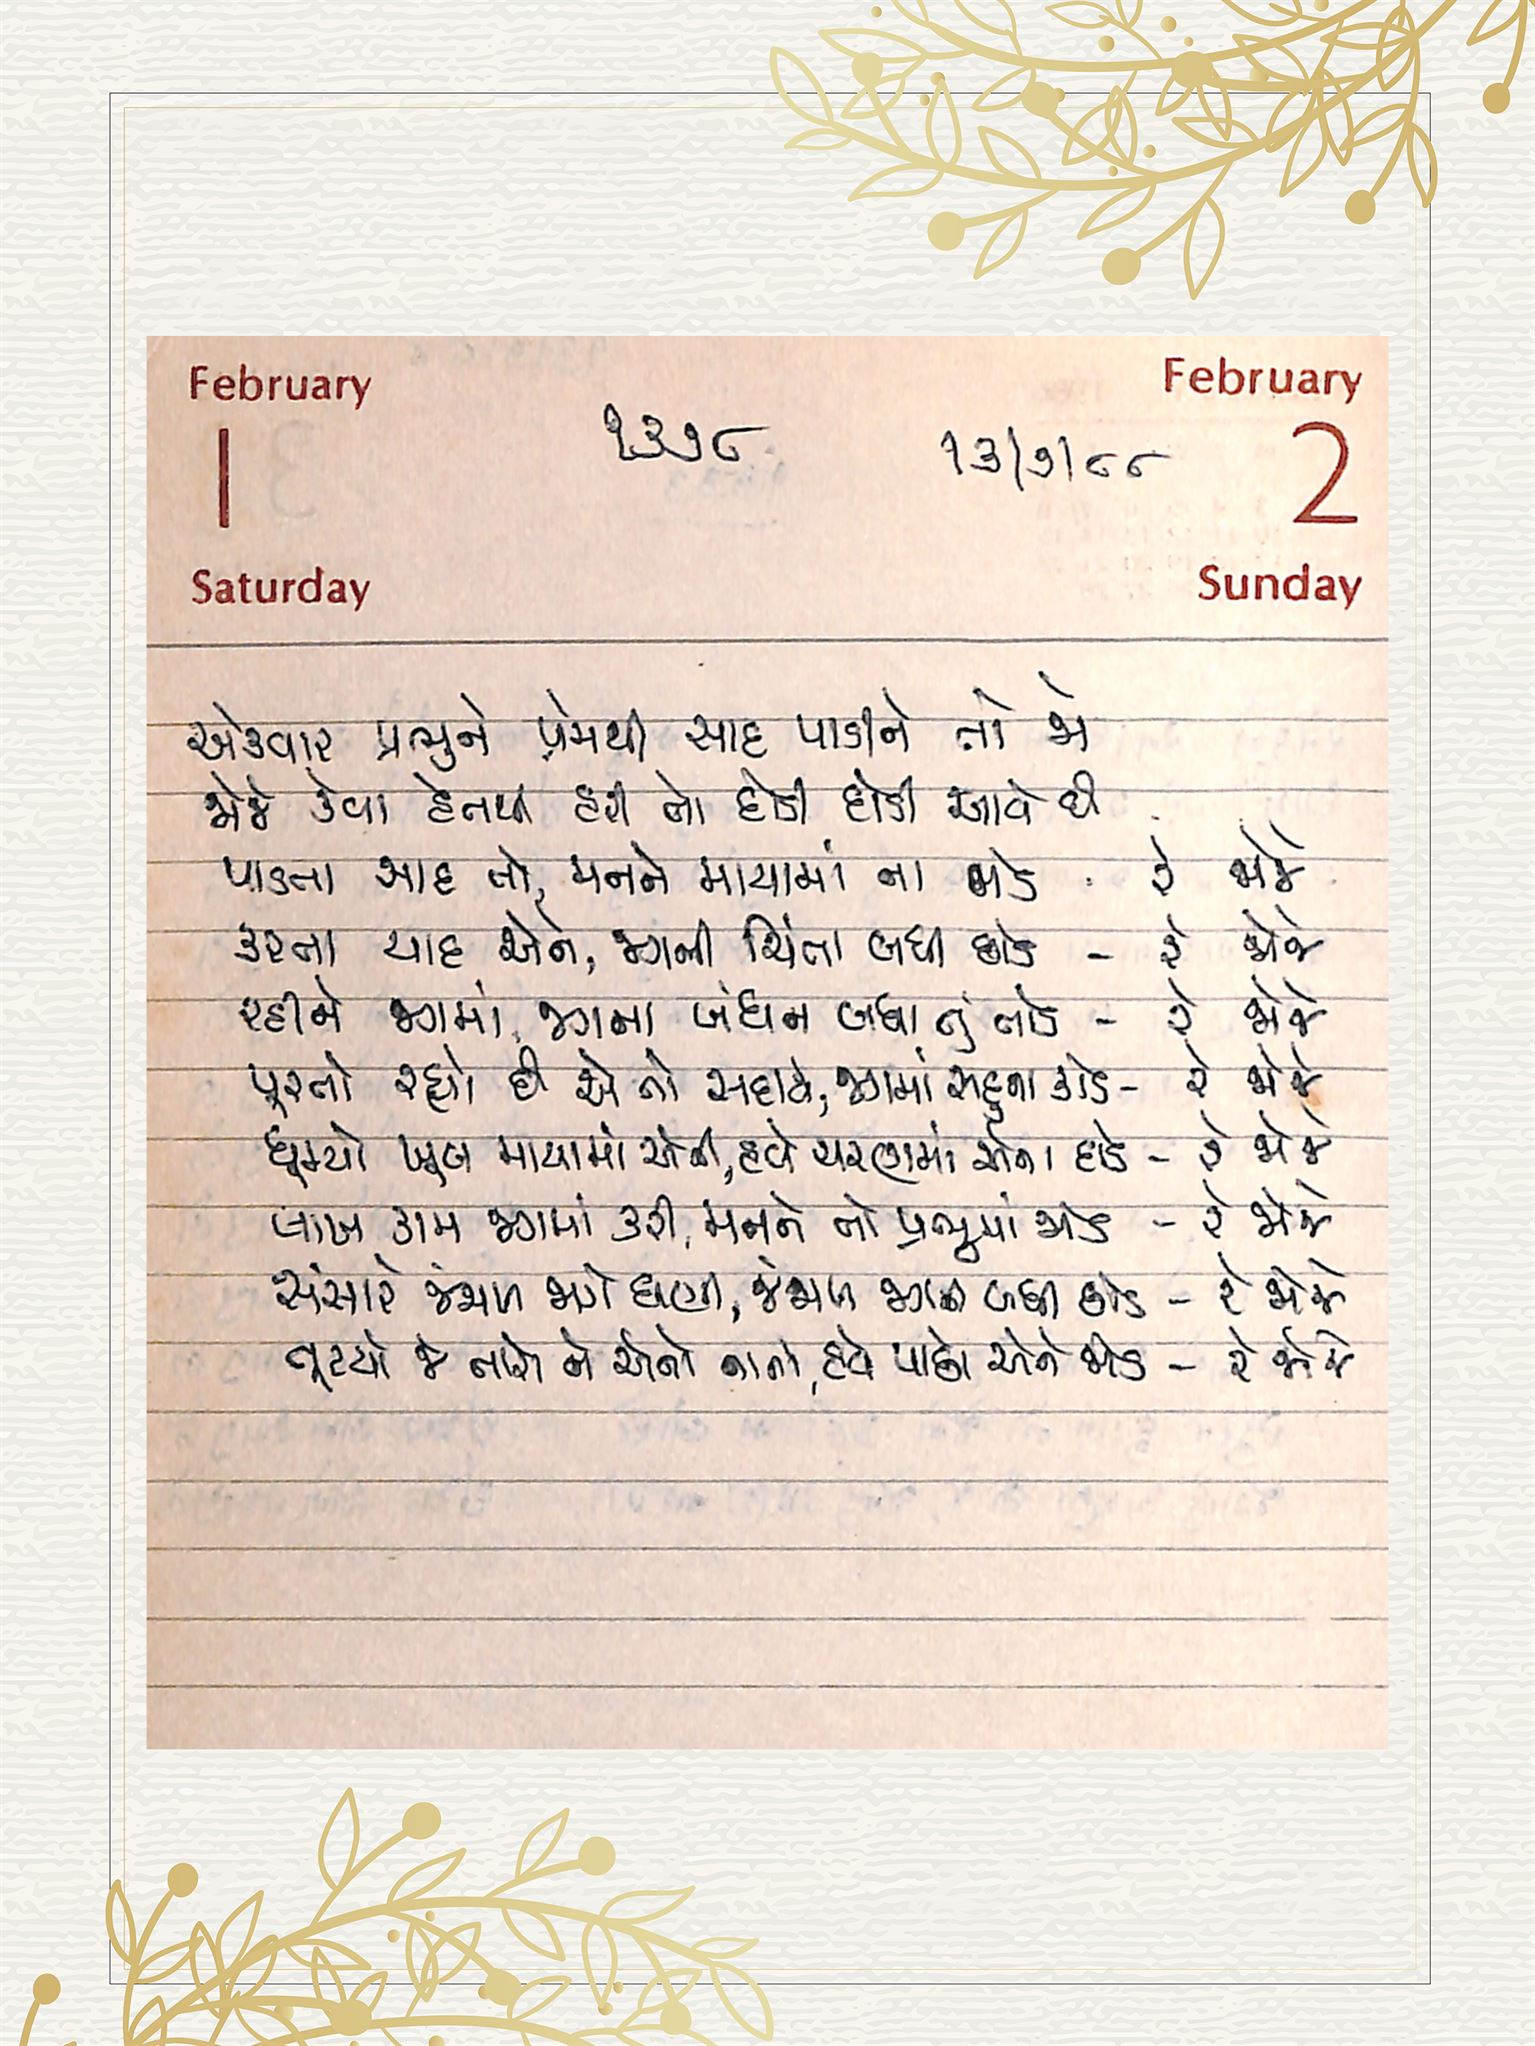 February
1
Saturday
૧૩૭૮
૧૩/૭/૮૮
February
2
Sunday
એકવાર પ્રભુને પ્રેમથી સાદ પાડીને તો જો
જોજે કેવા હેતથી હરી તો દોડી દોડી આવે છે
પાડતા સાદ તો, મનને માયામાં ના જોડ - રે જોજે
કરતા યાદ એને, જગની ચિંતા બધી છોડ - રે જોજે
રહીને જગમાં, જગના બંધન બધા તું તોડ - રે જોજે
પૂરતો રહ્યો છે એ તો સદાયે, જગમાં સહુના કોડ - રે જોજે
ઘૂમ્યો ખૂબ માયામાં એની, હવે ચરણમાં એના દોડ - રે જોજે
લાખ કામ જગમાં કરી, મનને તો પ્રભુમાં જોડ - રે જોજે
સંસારે જંજાળ જાગે ઘણી, જંજાળ જગની બધી છોડ - રે જોજે
તૂટ્યો જે તારો ને એનો નાતો, હવે પાછો એને જોડ - રે જોજે